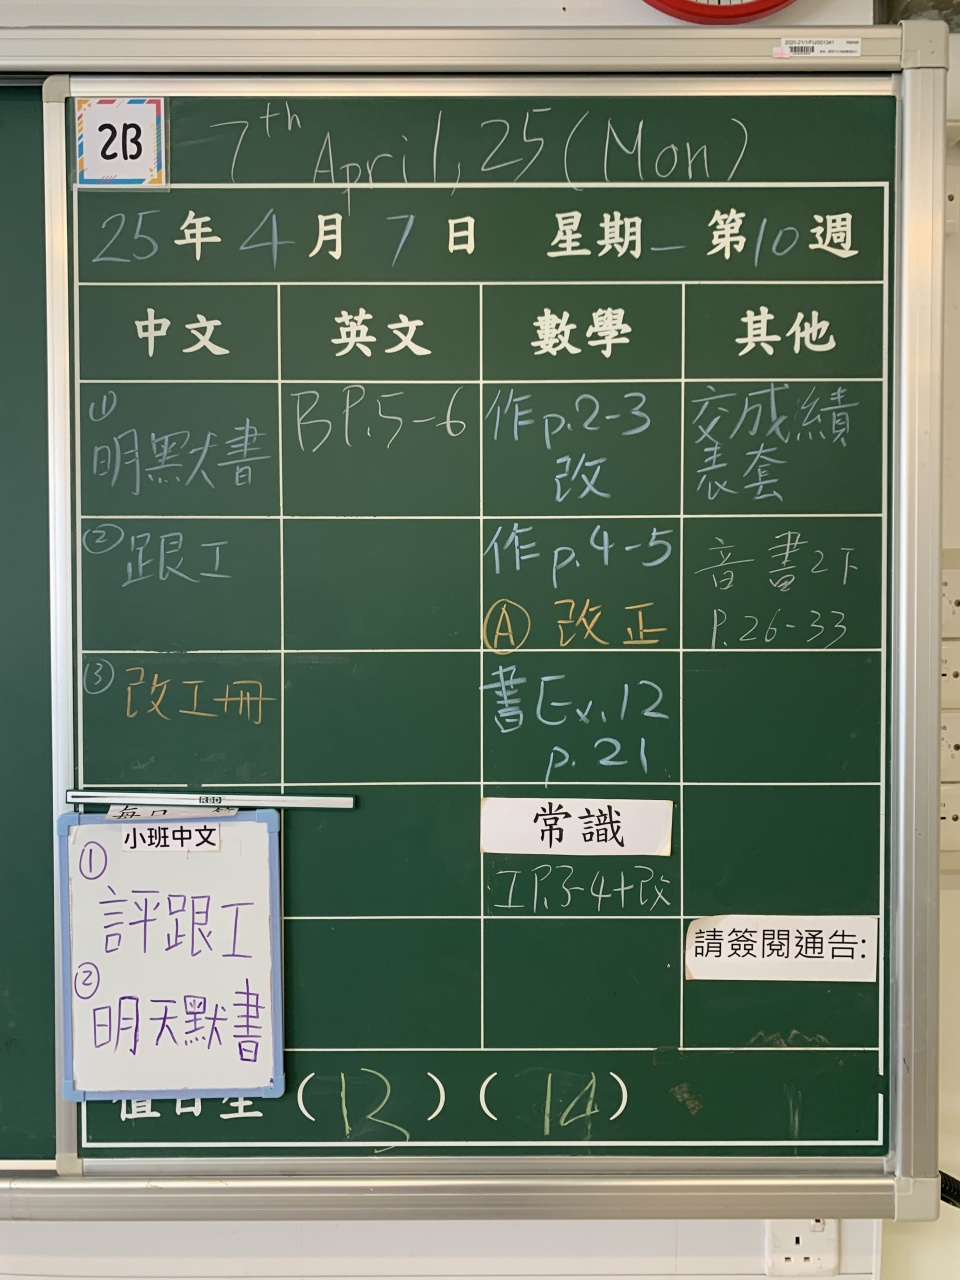 2B
7th April, 25 (Mon)
25年4月7日 星期一 第10週
中文 英文 數學 其他
① 明默書
BP.5-6
作p.2-3
改
交成績
表套
② 跟工
作p.4-5
Ⓐ 改正
音書2下
P.26-33
③ 改工冊
書Ex.12
p.21
RBD
小班中文
①
評跟工
②
明天默書
常識
工P.3-4+改
請簽閱通告:
值日生 (13) (14)